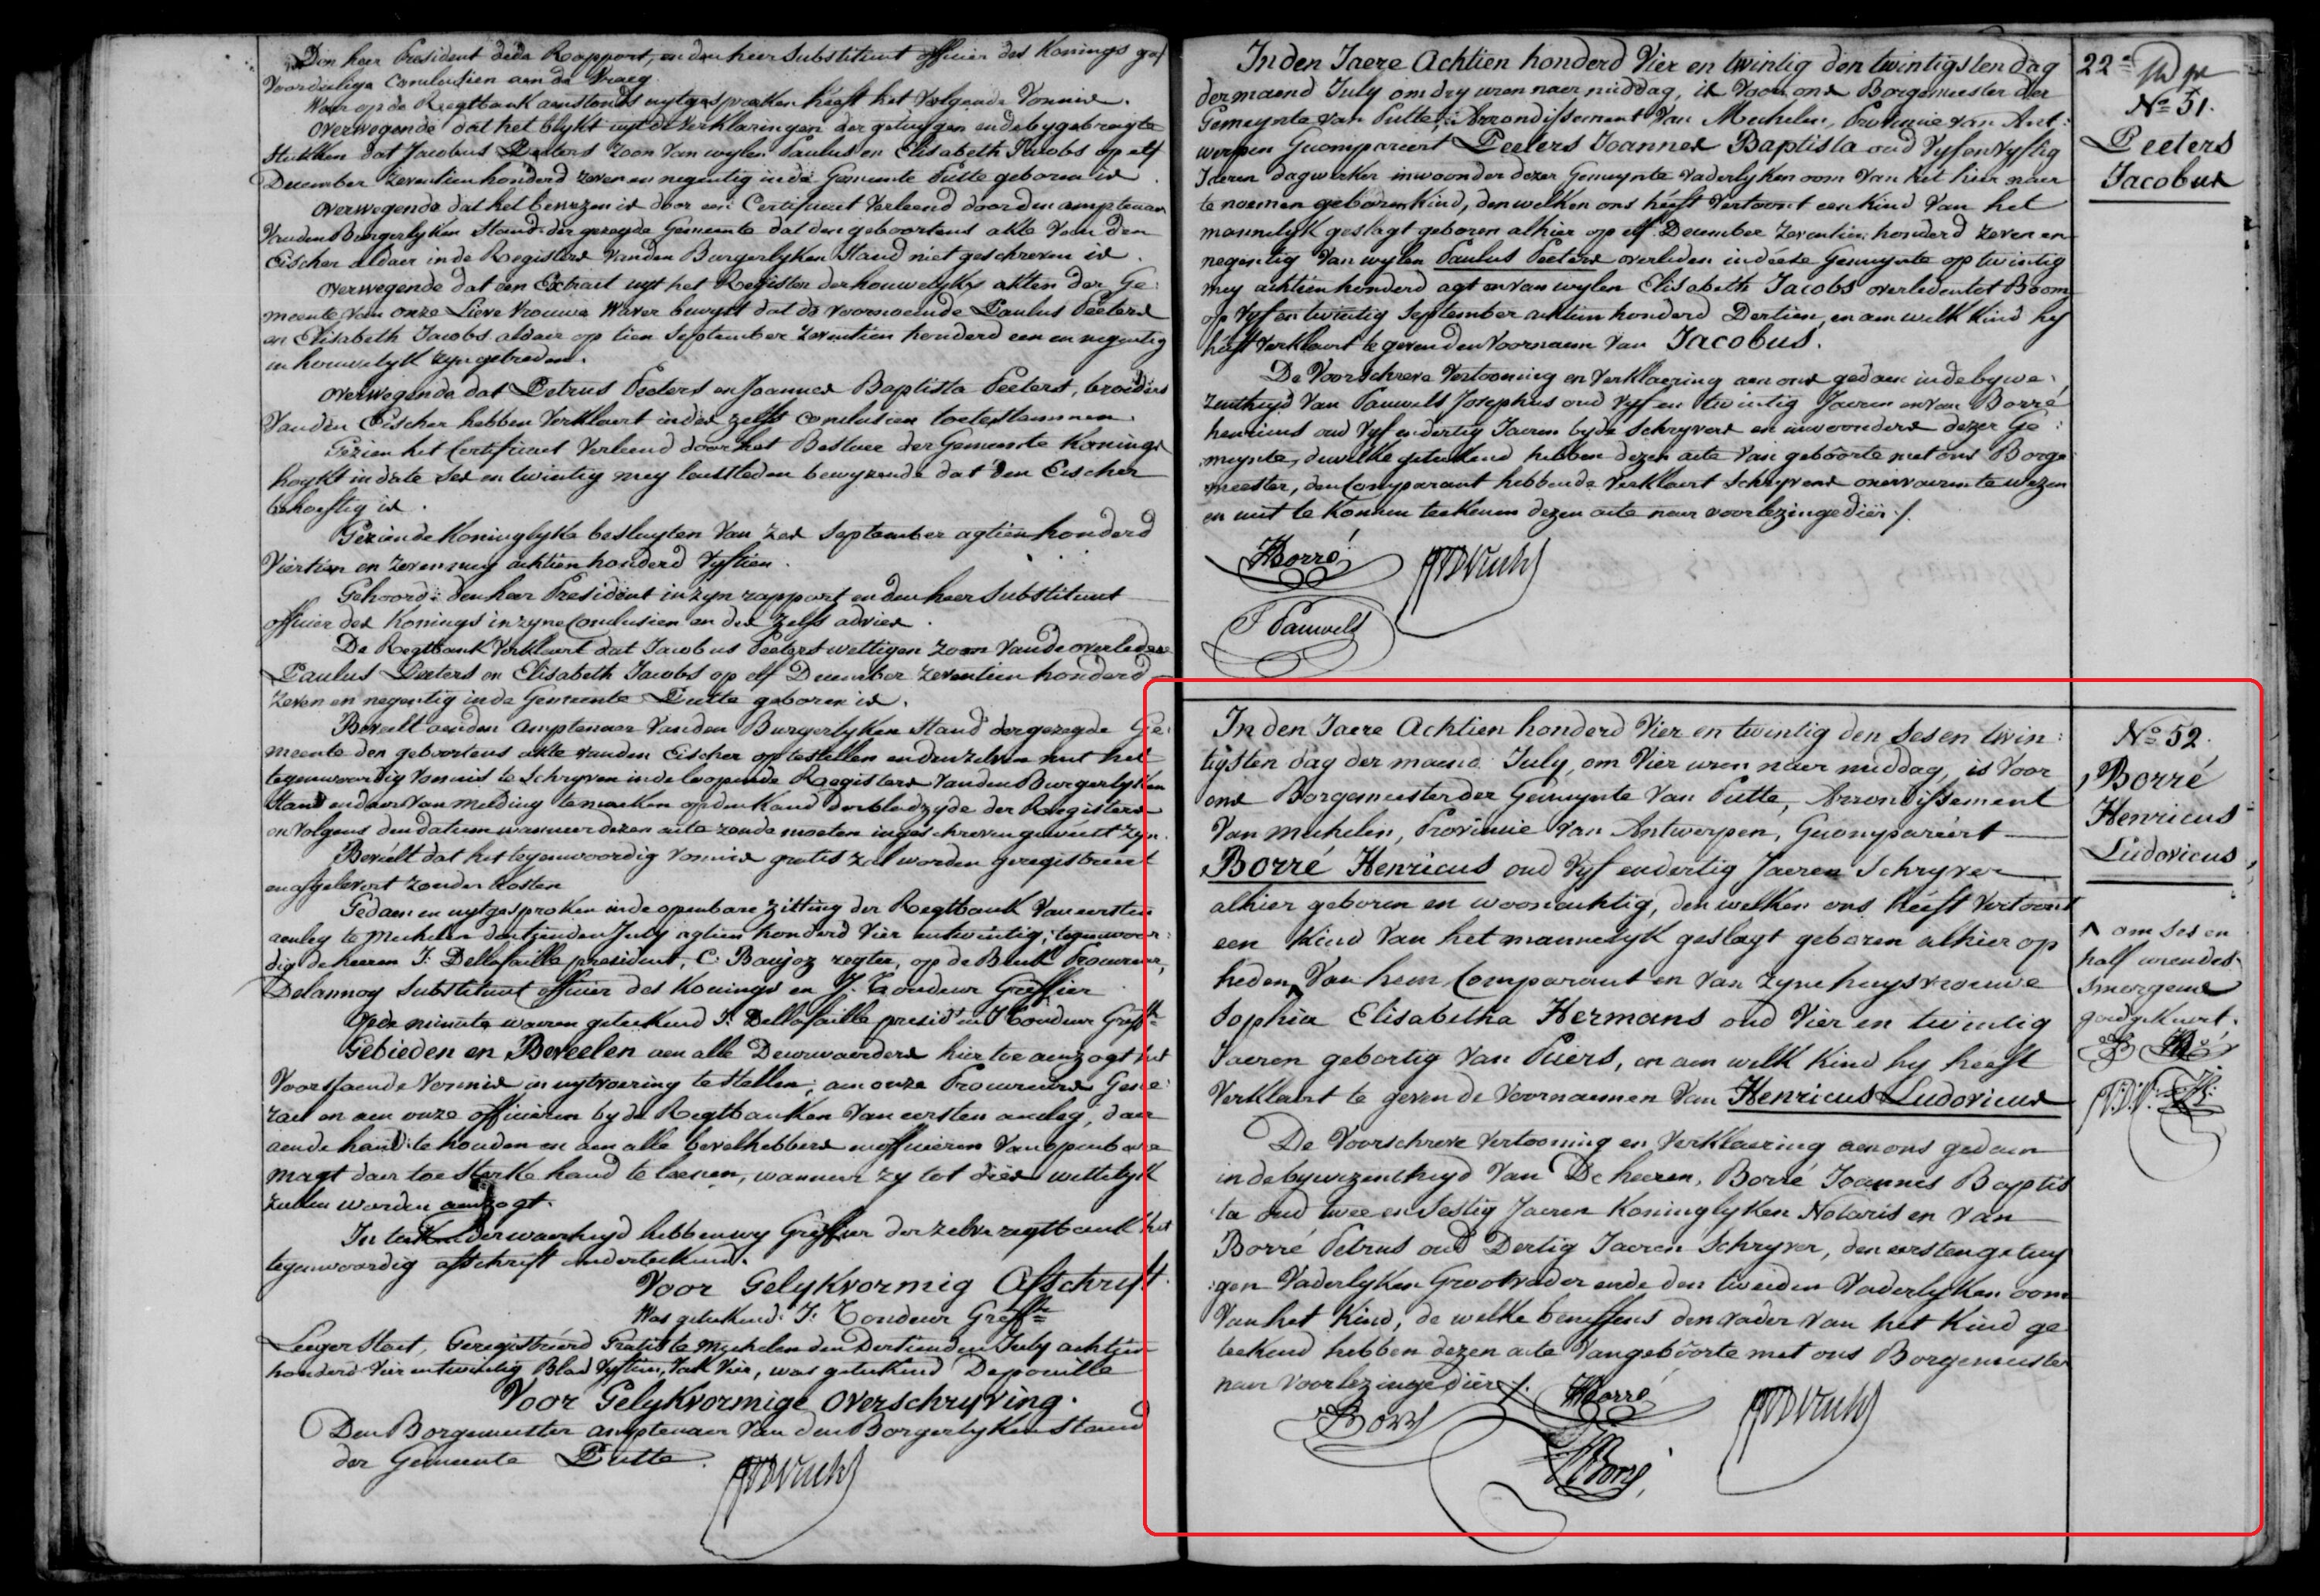 Den heer President dede Rapport, en den heer Substituut officier des Konings gaf
Voordeelige Conclusien aen de Vraeg.
Waer op de Regtbank aenstonds uytgesproken heeft het Volgende Vonnis.
Overwegende dat het blykt uyt de Verklaringen der getuygen en de bygebragte
Stukken dat Jacobus Peeters zoon van wylen Paulus en Elisabeth Jacobs op elf
December Zeventien honderd zeven en negentig in de Gemeente Putte geboren is.
Overwegende dat het bewezen is door een Certificaet Verleend door den amptenaer
Van den Burgerlyken Stand der gezegde Gemeente dat den geboortens akte Van den
Eischer aldaer in de Registers Van den Burgerlyken Stand niet geschreven is.
Overwegende dat een Extract uyt het Register der houwelyks akten der Ge:
meente Van onze Lieve Vrouwe Waver bewyst dat de voornoemde Paulus Peeters
en Elisabeth Jacobs aldaer op tien September Zeventien honderd een en negentig
in houwelyk zyn getreden.
Overwegende dat Petrus Peeters en Joannes Baptista Peeters, broeders
Van den Eischer hebben Verklaert in des zelfs Conclusien toetestemmen.
Gezien het Certificaet Verleend door het Bestuer der Gemeente Konings
hoykt in date ses en twintig mey laestleden bewyzende dat den Eischer
behoeftig is.
Gezien de Koninglyke besluyten Van zes September agtien honderd
Viertien en zeven mey achtien honderd Vyftien.
Gehoord den heer President in zyn rapport en den heer Substituut
officier des Konings in zyne Conclusien en des zelfs advies.
De Regtbank Verklaert dat Jacobus Peeters wettigen zoon Van de overledene
Paulus Peeters en Elisabeth Jacobs op elf December Zeventien honderd
Zeven en negentig in de Gemeente Putte geboren is.
Beveelt aen den Amptenaer Van den Burgerlyken Stand der gezegde Ge:
meente den geboortens akte van den Eischer op te stellen en den zelven met het
tegenwoordig Vonnis te Schryven in de loopende Registers Van den Burgerlyken
Stand en daer Van melding te maeken op den Kand der bladzyde der Registers
en Volgens den datum wanneer dezen acte zoude moeten ingeschreven geweest zyn.
Beveelt dat het tegenwoordig Vonnis gratis zal worden geregistreert
en afgelevert zonder Kosten
Gedaen en uytgesproken in de openbare zitting der Regtbank Van eersten
aenleg te Mechelen den tienden July agtien honderd Vier en twintig, tegenwoor:
dig de heeren J: Dellafaille president, C: Baujoz regter, op de Bank Procureur,
Delannoy Substituut officier des Konings en J. Tondeur Greffier
Op de minute waeren geteekend J: Dellafaille presidt en J Tondeur Greffr
Gebieden en Beveelen aen alle Deurwaerders hier toe aenzogt het
Voorstaende Vonnis in uytvoering te stellen; aen onze Procureurs Gene:
rael en aen onze officieren by de Regtbanken Van eersten aenleg, daer
aen de hand te houden en aen alle bevelhebbers en officieren Van openbare
magt daer toe sterke hand te leenen, wanneer zy tot dies wettelyk
zullen worden aenzogt.
In teeken der waerheyd hebben wy Greffier der zelve regtbank het
tegenwoordig afschrift onderteekend.
Voor Gelykvormig Afschrift.
Was geteekend J: Tondeur Greffr
Leeger Staet, Geregistreerd Gratis te Mechelen den Dertienden July achtien
honderd Vier en twintig Blad Vyftien, Vak Vier, was geteekend Depouille
Voor Gelykvormige Overschryving.
Den Borgemeester amptenaer Van den Borgerlyken Stand
der Gemeente Putte.
In den Jaere Achtien honderd Vier en twintig den twintigsten dag
der maend July om dry uren naer middag, is Voor ons Borgemeester der
Gemeynte van Putte, Arrondissement Van Mechelen, Provincie van Ant:
werpen Gecompareert Peeters Joannes Baptista oud Vyf en Vyftig
Jaeren dagwerker inwoonder dezer Gemeynte Vaderlyken oom Van het hier naer
te noemen geboren Kind, den welken ons heeft Vertoont een Kind Van het
mannelyk geslagt geboren alhier op elf December Zeventien honderd zeven en
negentig Van wylen Paulus Peeters overleden in dese Gemeynte op twintig
mey achtien honderd agt en van wylen Elisabeth Jacobs overleden tot Boom
op Vyf en twintig September achtien honderd Dertien, en aen welk Kind hy
heeft Verklaert te geven den Voornaem Van Jacobus.
De Voorschreve Vertooning en Verklaering aen ons gedaen in de bywe:
zentheyd Van Pauwels Josephus oud Vyf en twintig Jaeren en van Borré
henricus oud Vyf en dertig Jaeren byde Schryvers en inwoonders dezer Ge:
meynte, de welke geteekend hebben dezen acte Van geboorte met ons Borge
meester, den Comparant hebbende Verklaert Schryvens onervaeren te wezen
en niet te Konnen teekenen dezen acte naer voorlezinge dier./.
HBorré
J Pauwels
22e
No 51.
Peeters
Jacobus
In den Jaere Achtien honderd Vier en twintig den ses en twin:
tigsten dag der maend July, om Vier uren naer middag, is Voor
ons Borgemeester der Gemeynte Van Putte, Arrondissement
Van Mechelen, Provincie Van Antwerpen, Gecompareert
Borré Henricus oud Vyf en dertig Jaeren Schryver
alhier geboren en woonachtig, den welken ons heeft Vertoont
een Kind Van het mannelyk geslagt geboren alhier op
heden ^ Van hem Comparant en Van zyne huysvrouwe
Sophia Elisabetha Hermans oud Vier en twintig
Jaeren gebortig Van Puers, en aen welk Kind hy heeft
Verklaert te geven de Voornaemen Van Henricus Ludovicus
De Voorschreve Vertooning en Verklaering aen ons gedaen
in de bywezentheyd Van De heeren, Borré Joannes Baptis
ta oud twee en Sestig Jaeren Koninglyken Notaris en van
Borré Petrus oud Dertig Jaeren Schryver, den eersten getuy
gen Vaderlyken Grootvader ende den tweeden Vaderlyken oom
Van het Kind, de welke beneffens den vader Van het Kind ge
teekend hebben dezen acte Van geboorte met ons Borgemeester
naer Voorlezinge dier./.
HBorré
Borré
No 52.
Borré
Henricus
Ludovicus
^ om ses en
half uren des
Smorgens
goedgekeurt.